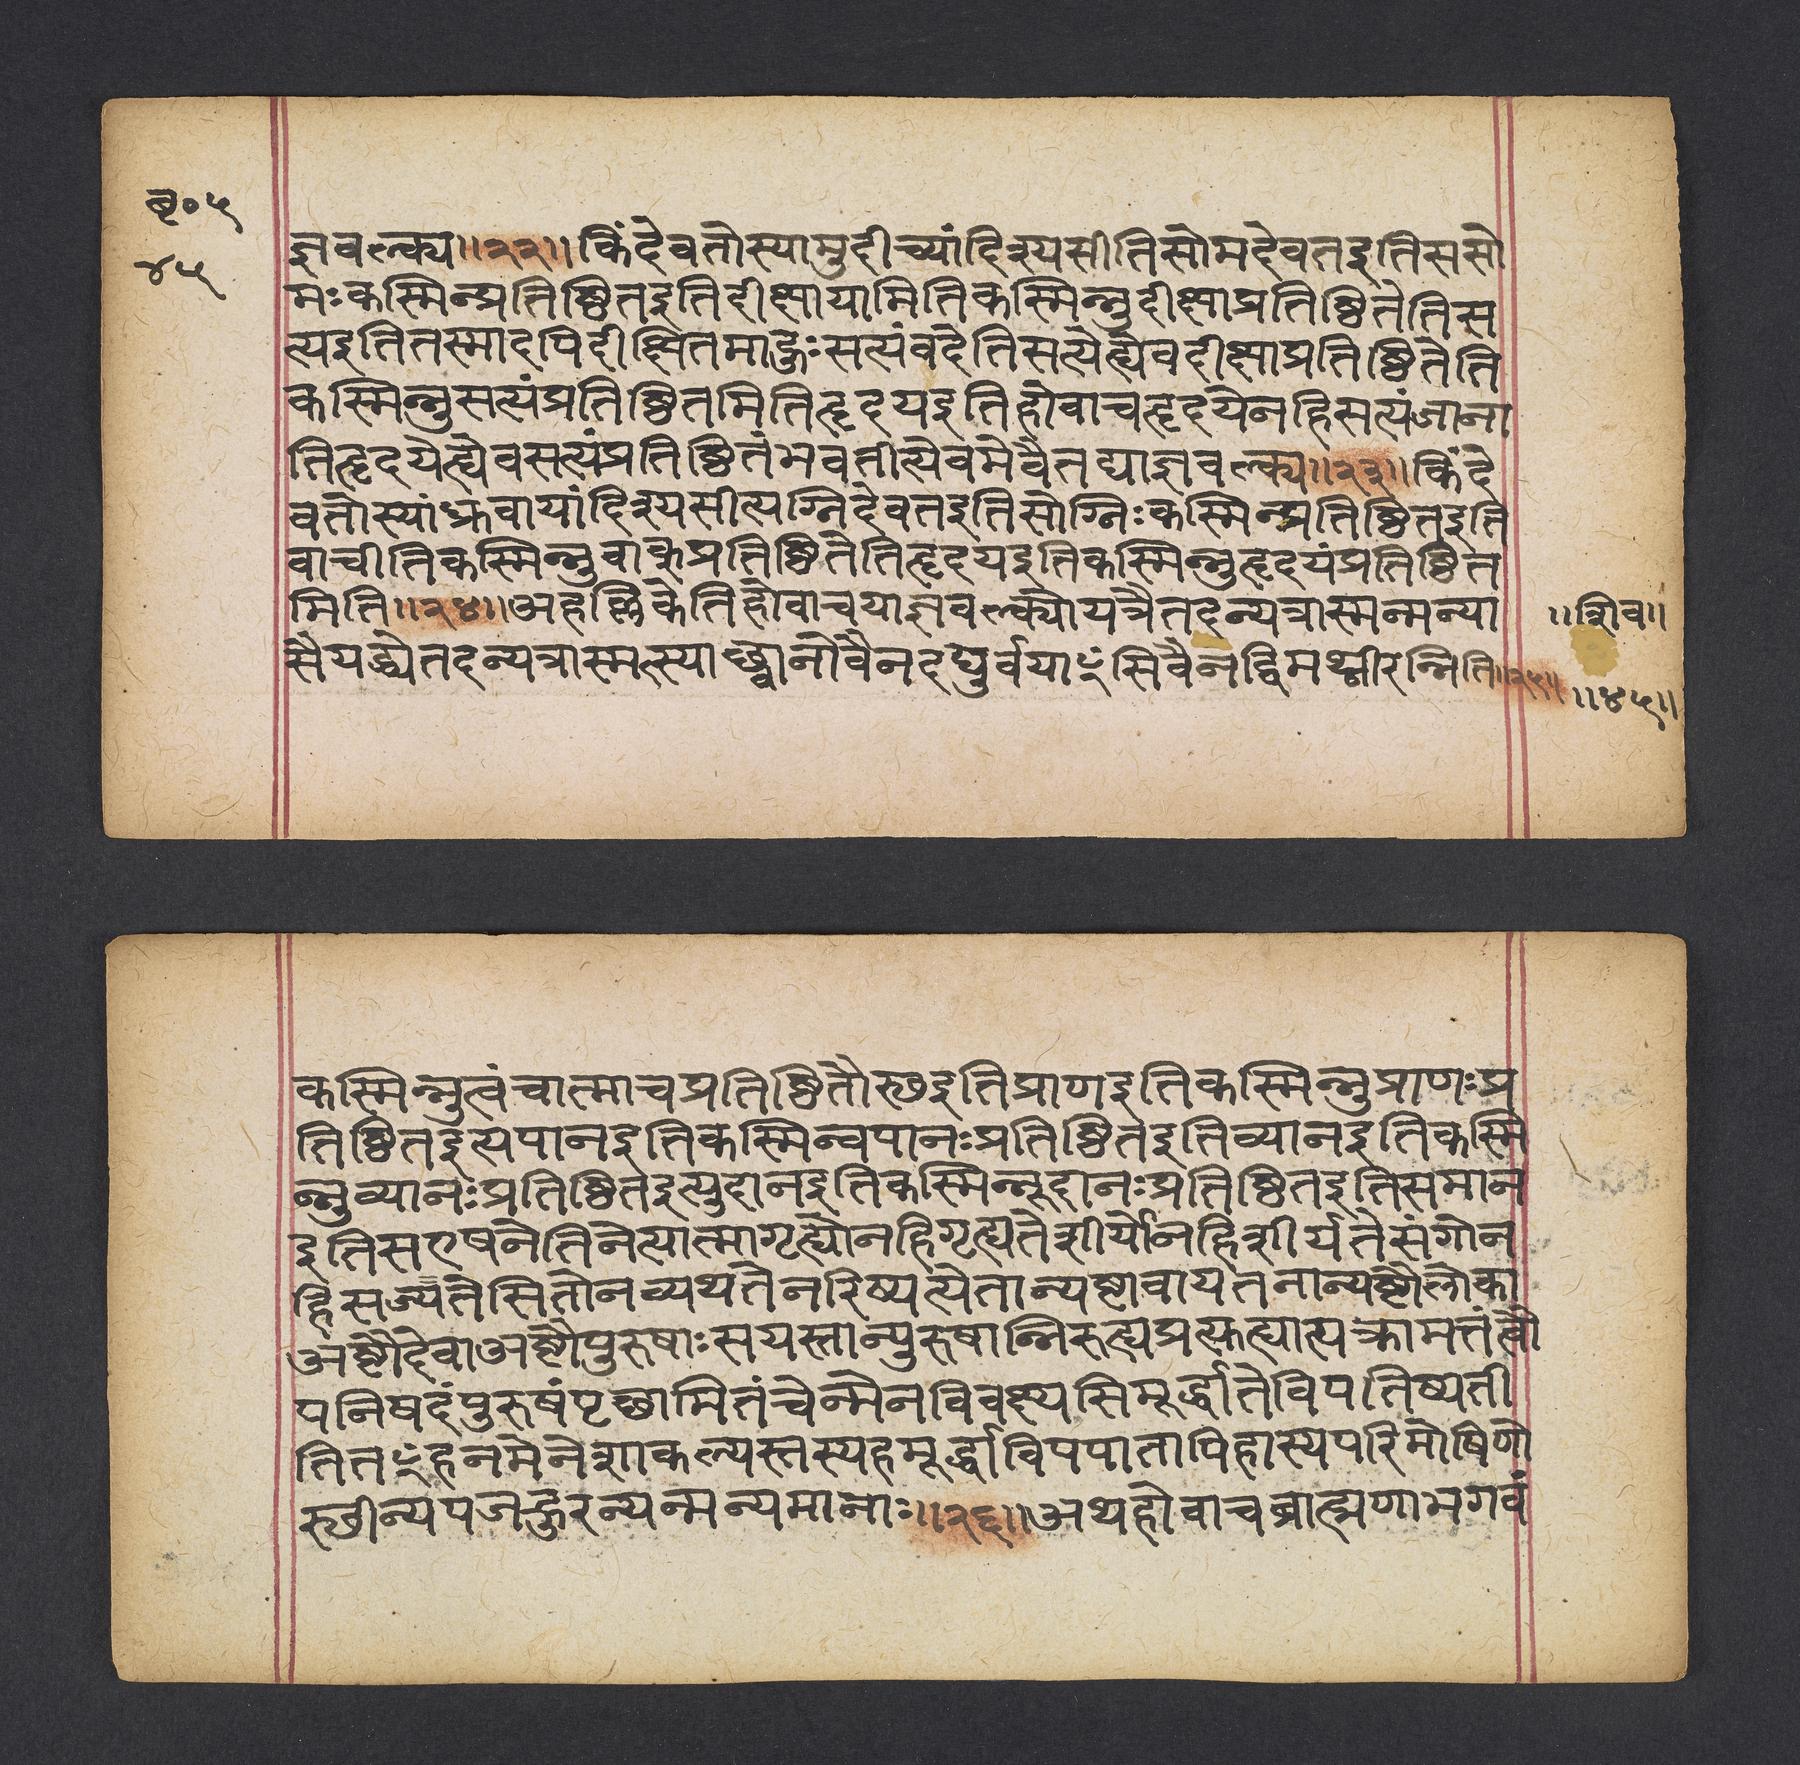 बृ०५
४५
ज्ञवल्क्य॥२२॥किंदेवतोस्यामुदीच्यांदिश्यसीतिसोमदेवतइतिससो
मःकस्मिन्प्रतिष्ठितइतिदीक्षायामितिकस्मिन्नुदीक्षाप्रतिष्ठितेतिस
त्यइतितस्मादपिदीक्षितमाहुःसत्यंवदेतिसत्येह्येवदीक्षाप्रतिष्ठितेति
कस्मिन्नुसत्यंप्रतिष्ठितमितिहृदयइतिहोवाचहृदयेनहिसत्यंजाना
तिहृदयेह्येवसत्यंप्रतिष्ठितंभवतीत्येवमेवैतद्याज्ञवल्क्य॥२३॥किंदे
वतोस्यांध्रुवायांदिश्यसीत्यग्निदेवतइतिसोग्निःकस्मिन्प्रतिष्ठितइति
वाचीतिकस्मिन्नुवाक्प्रतिष्ठितेतिहृदयइतिकस्मिन्नुहृदयंप्रतिष्ठित
मिति॥२४॥अहल्लिकेतिहोवाचयाज्ञवल्क्योयत्रैतदन्यत्रास्मन्मन्या
सैयद्ध्येतदन्यत्रास्मत्स्याच्छ्वानोवैनदद्युर्वयाꣳसिवैनद्विमथ्नीरन्निति॥२५॥
॥शिव॥
॥४५॥
कस्मिन्नुत्वंचात्माचप्रतिष्ठितौस्थइतिप्राणइतिकस्मिन्नुप्राणःप्र
तिष्ठितइत्यपानइतिकस्मिन्न्वपानःप्रतिष्ठितइतिव्यानइतिकस्मि
न्नुव्यानःप्रतिष्ठितइत्युदानइतिकस्मिन्नूदानःप्रतिष्ठितइतिसमान
इतिसएषनेतिनेत्यात्मागृह्योनहिगृह्यतेशीर्योनहिशीर्यतेसंगोन
हिसज्यतेसितोनव्यथतेनरिष्यत्येतान्यष्टावायतनान्यष्टौलोका
अष्टौदेवाअष्टौपुरुषाःसयस्तान्पुरुषान्निरुह्यप्रत्युह्यात्यक्रामत्तंत्वौ
पनिषदंपुरुषंपृच्छामितंचेन्मेनविवक्ष्यसिमूर्द्धातेविपतिष्यती
तितꣳहनमेनेशाकल्यस्तस्यहमूर्द्धाविपपातापिहास्यपरिमोषिणो
स्थीन्यपजह्रुरन्यन्मन्यमानाः॥२६॥अथहोवाचब्राह्मणाभगवं